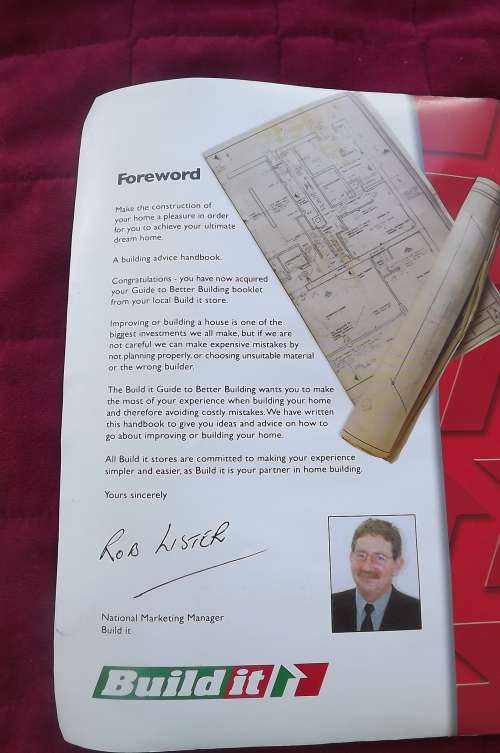 Foreword
Make the construction of
your home a pleasure in order
for you to achieve your ultimate
dream home.
A building advice handbook.
Congratulations - you have now acquired
your Guide to Better Building booklet
from your local Build it store.
Improving or building a house is one of the
biggest investments we all make, but if we are
not careful we can make expensive mistakes by
not planning properly, or choosing unsuitable material
or the wrong builder.
The Build it Guide to Better Building wants you to make
the most of your experience when building your home
and therefore avoiding costly mistakes. We have written
this handbook to give you ideas and advice on how to
go about improving or building your home.
All Build it stores are committed to making your experience
simpler and easier, as Build it is your partner in home building.
Yours sincerely
ROB LISTER
National Marketing Manager
Build it
Build it